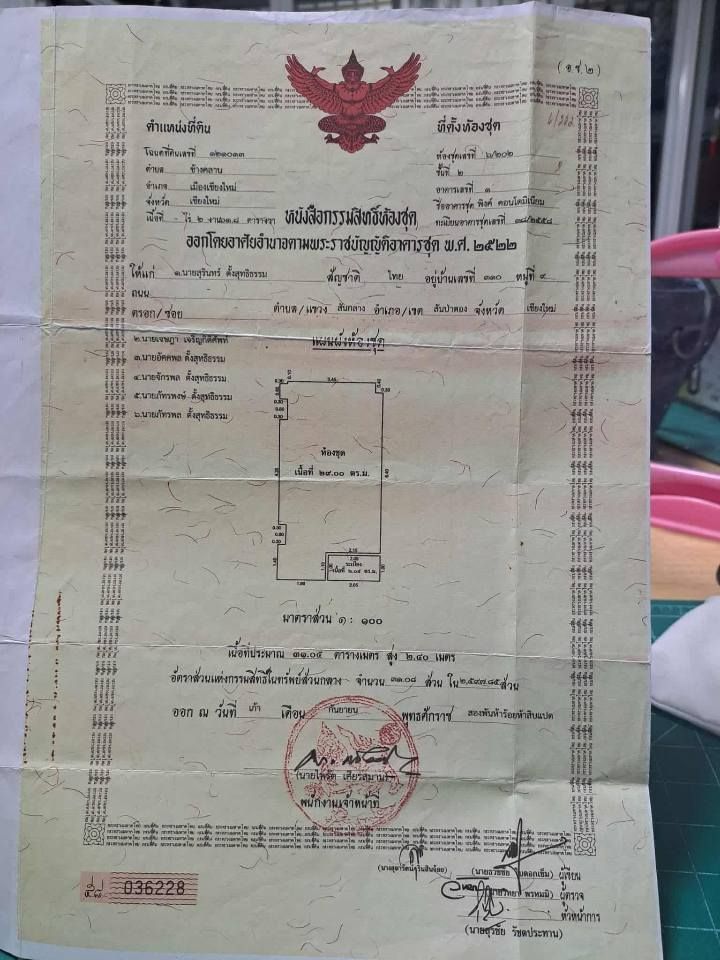 (อ.ช.๒)
ตำแหน่งที่ดิน
โฉนดที่ดินเลขที่ ๑๒๑๐๑๓
ตำบล ช้างคลาน
อำเภอ เมืองเชียงใหม่
จังหวัด เชียงใหม่
เนื้อที่ - ไร่ ๒ งาน ๖๑.๘ ตารางวา
ที่ตั้งห้องชุด
๖/222
ห้องชุดเลขที่ ๖/๒๐๒
ชั้นที่ ๒
อาคารเลขที่ ๑
ชื่ออาคารชุด พิงค์ คอนโดมิเนียม
ทะเบียนอาคารชุดเลขที่ ๑๘/๒๕๕๘
หนังสือกรรมสิทธิ์ห้องชุด
ออกโดยอาศัยอำนาจตามพระราชบัญญัติอาคารชุด พ.ศ. ๒๕๒๒
ให้แก่ ๑.นายสุรินทร์ ตั้งสุทธิธรรม สัญชาติ ไทย อยู่บ้านเลขที่ ๓๑๐ หมู่ที่ ๙
ถนน
ตรอก/ซอย ตำบล/แขวง สันกลาง อำเภอ/เขต สันป่าตอง จังหวัด เชียงใหม่
๒.นายเจษฎา เจริญกิติศัพท์
๓.นายอัคคพล ตั้งสุทธิธรรม
๔.นายจักรพล ตั้งสุทธิธรรม
๕.นายภัทรพงษ์ ตั้งสุทธิธรรม
๖.นายภัทรพล ตั้งสุทธิธรรม
แผนผังห้องชุด
ห้องชุด
เนื้อที่ ๒๙.๐๐ ตร.ม.
ระเบียง
เนื้อที่ ๒.๐๔ ตร.ม.
มาตราส่วน ๑ : ๑๐๐
เนื้อที่ประมาณ ๓๑.๐๔ ตารางเมตร สูง ๒.๔๐ เมตร
อัตราส่วนแห่งกรรมสิทธิ์ในทรัพย์ส่วนกลาง จำนวน ๓๑.๐๘ ส่วน ใน ๒,๕๙๗.๘๕ ส่วน
ออก ณ วันที่ เก้า เดือน กันยายน พุทธศักราช สองพันห้าร้อยห้าสิบแปด
(นายไพรัต เศียรสุมาน)
พนักงานเจ้าหน้าที่
ผู้เขียน
ผู้ตรวจ
หัวหน้าการ
(นายสุรชัย รัชตประทาน)
036228